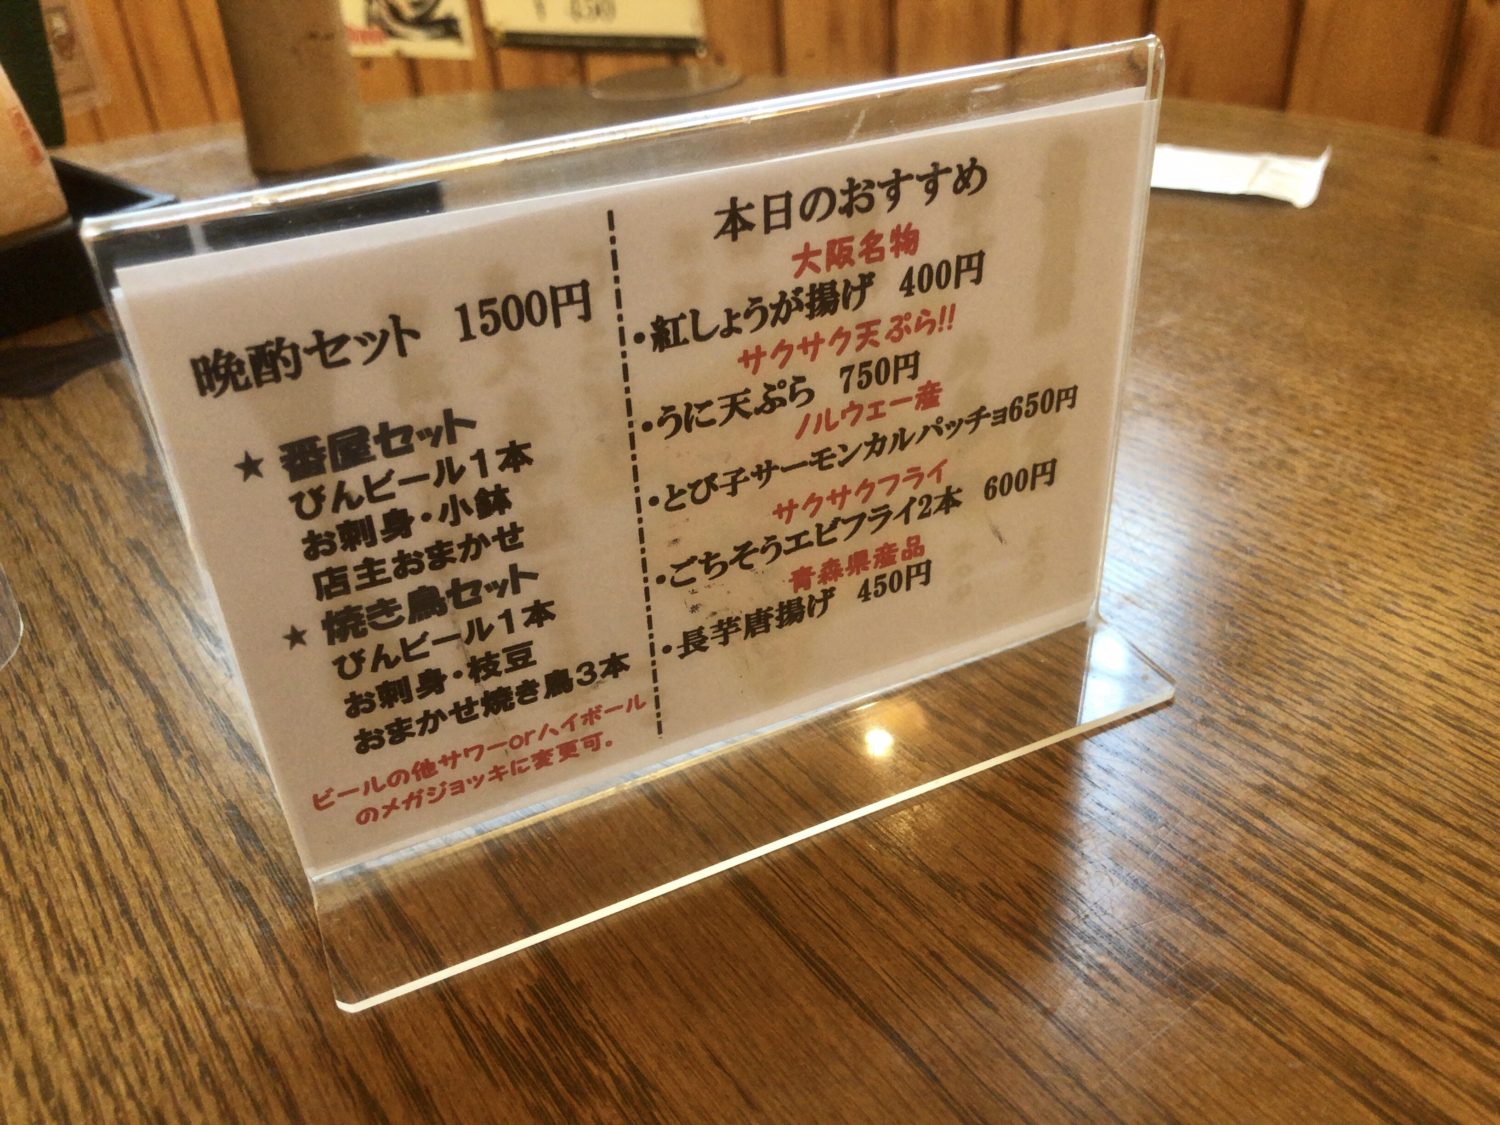 ¥450
晩酌セット 1500円
★ 番屋セット
びんビール1本
お刺身・小鉢
店主おまかせ
★ 焼き鳥セット
びんビール1本
お刺身・枝豆
おまかせ焼き鳥3本
ビールの他サワーorハイボール
のメガジョッキに変更可。
本日のおすすめ
大阪名物
・紅しょうが揚げ 400円
サクサク天ぷら!!
・うに天ぷら 750円
ノルウェー産
・とび子サーモンカルパッチョ650円
サクサクフライ
・ごちそうエビフライ2本 600円
青森県産品
・長芋唐揚げ 450円